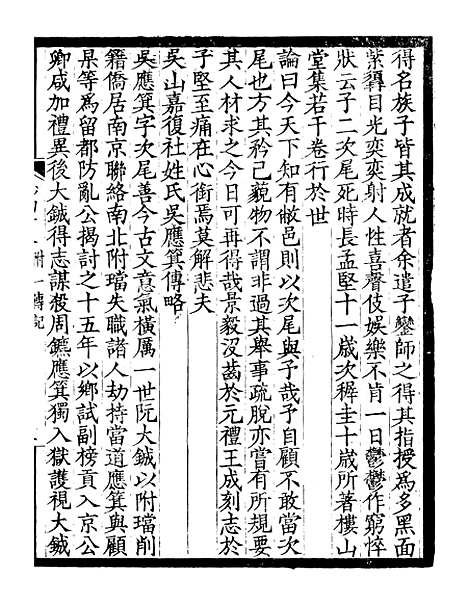 得名族子皆其成就者余遣子鑾師之得其指授爲多黑面
紫髥目光奕奕射人性喜聲伎娛樂不肯一日鬱鬱作窮悴
狀云子二次尾死時長孟堅十一歲次穉圭十歲所著樓山
堂集若干卷行於世
論曰今天下知有敝邑則以次尾與予哉予自顧不敢當次
尾也方其矜己藐物不謂非過其舉事疏脫亦嘗有所規要
其人材求之今日可再得哉景毅沒齒於元禮王成刻志於
子堅至痛在心銜焉莫解悲夫
吳山嘉復社姓氏吳應箕傳略
吳應箕字次尾善今古文意氣橫厲一世阮大鋮以附璫削
籍僑居南京聯絡南北附璫失職諸人劫持當道應箕與顧
杲等爲留都防亂公揭討之十五年以鄉試副榜貢入京公
卿咸加禮異後大鋮得志謀殺周鑣應箕獨入獄護視大鋮
附一傳記